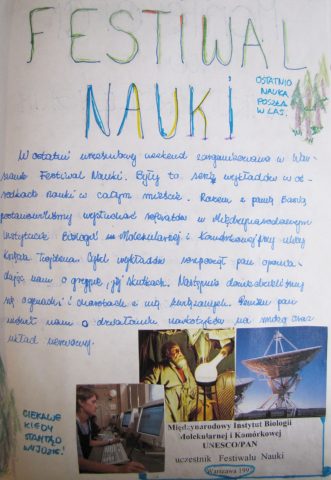 FESTIWAL
NAUKI
OSTATNIO
NAUKA
POSZŁA
W LAS.
W ostatni wrześniowy weekend zorganizowano w War-
szawie Festiwal Nauki. Były to serie wykładów w oś-
rodkach nauki w całym mieście. Razem z panią Basią
postanowiliśmy wysłuchać referatów w Międzynarodowym
Instytucie Biologii Molekularnej i Komórkowej przy ulicy
Księcia Trojdena. Cykl wykładów rozpoczął pan opowia-
dając nam o grypie, jej skutkach. Następnie dowiedzieliśmy
się o
i chorobach z nią związanych. Pewien pan
mówił nam o działaniu narkotyków na mózg oraz
układ nerwowy.
CIEKAWE
KIEDY
STAMTĄD
WYJDZIE!
Międzynarodowy Instytut Biologii
Molekularnej i Komórkowej
UNESCO/PAN
uczestnik Festiwalu Nauki
Warszawa 199